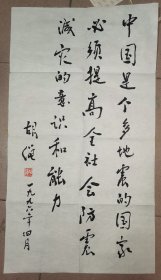 中国是个多地震的国家
必须提高全社会防震
减灾的意识和能力
一九九六年四月